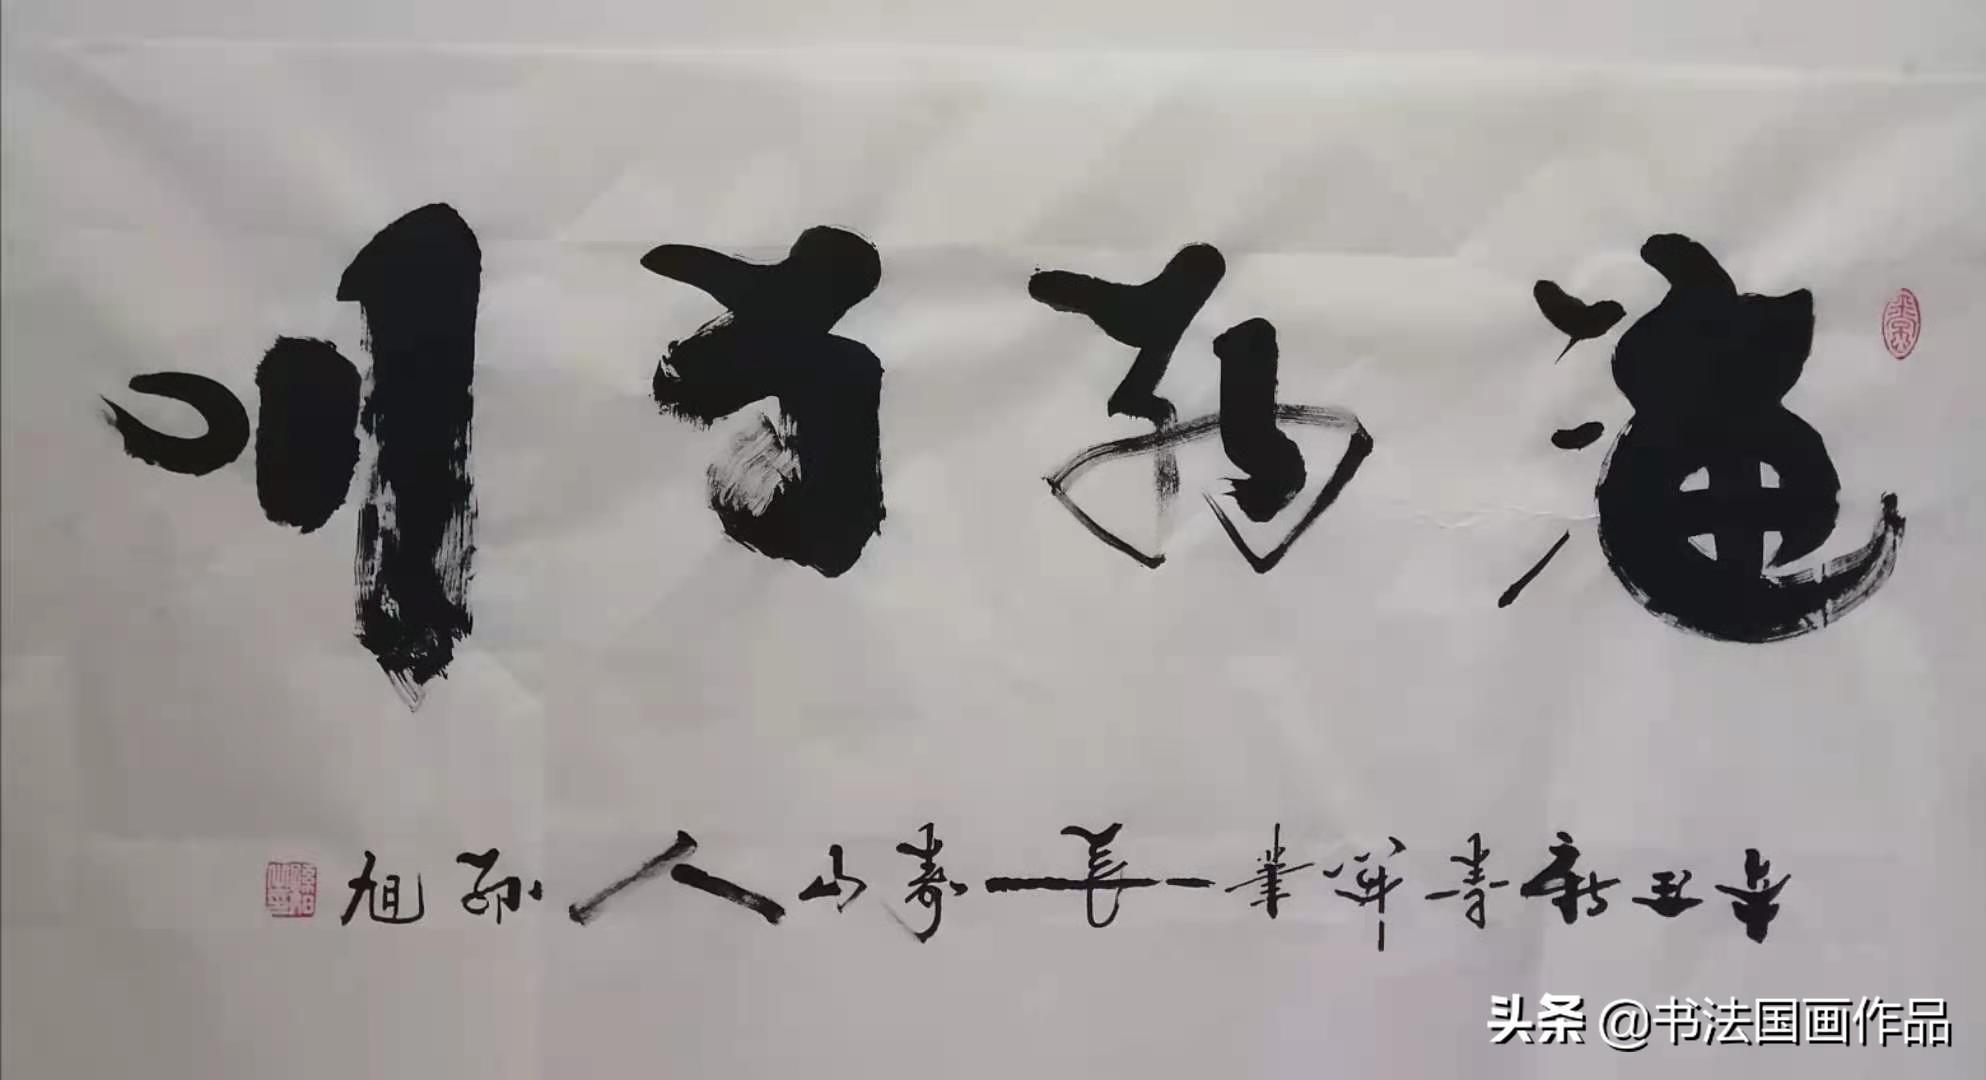 海纳百川
辛丑新春 业 长 寿山人 孙旭
头条 @书法国画作品